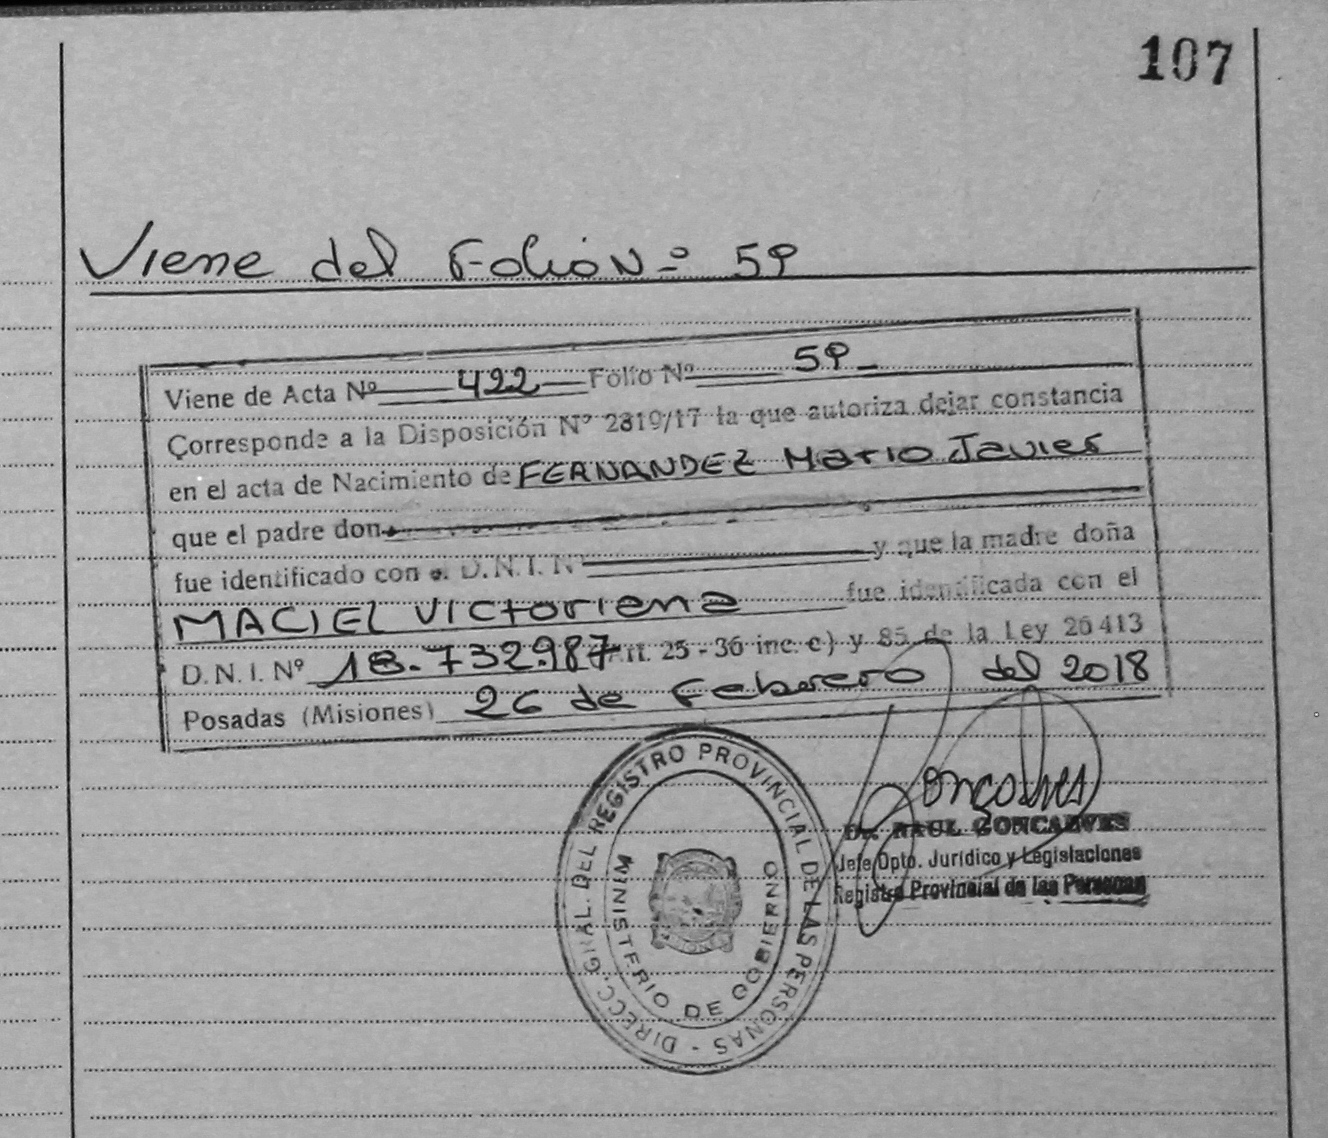 107
Viene del Folio Nº 59
Viene de Acta Nº 422 Folio Nº 59
Corresponde a la Disposición Nº 2819/17 la que autoriza dejar constancia
en el acta de Nacimiento de FERNANDEZ Mario Javier
que el padre don
fue identificado con el D.N.I. Nº y que la madre doña
MACIEL VICTORIANA fue identificada con el
D.N.I. Nº 18.732.987 Art. 25 - 36 inc. c) y 85 de la Ley 26413
Posadas (Misiones) 26 de Febrero del 2018
Goncalves
Dr. RAUL GONCALVES
Jefe Dpto. Jurídico y Legislaciones
Registro Provincial de las Personas
DIRECC. GRAL. DEL REGISTRO PROVINCIAL DE LAS PERSONAS -
MINISTERIO DE GOBIERNO